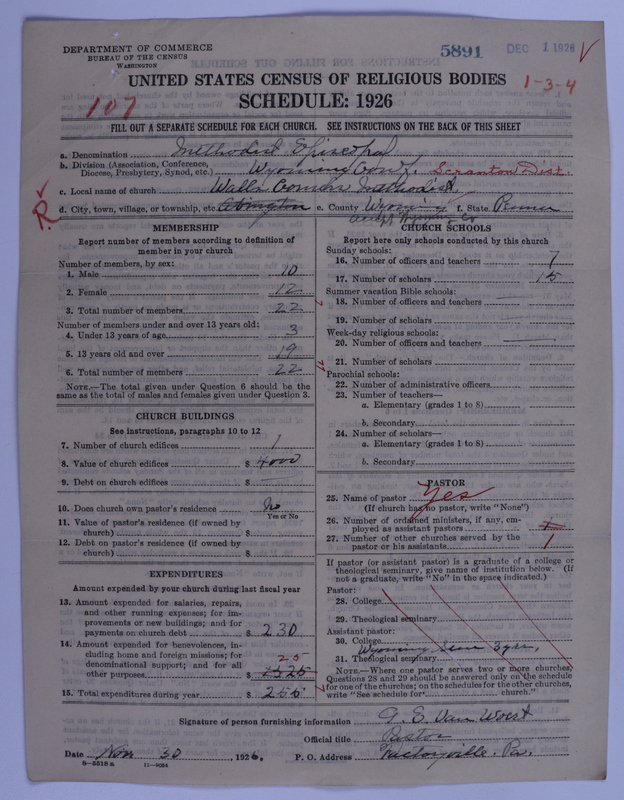 DEPARTMENT OF COMMERCE
BUREAU OF THE CENSUS
WASHINGTON
5891 DEC 1 1926
UNITED STATES CENSUS OF RELIGIOUS BODIES
1-3-4
107
SCHEDULE: 1926
FILL OUT A SEPARATE SCHEDULE FOR EACH CHURCH. SEE INSTRUCTIONS ON THE BACK OF THIS SHEET
a. Denomination Methodist Episcopal
b. Division (Association, Conference, Diocese, Presbytery, Synod, etc.) Wyoming Conf. Scranton Dist.
c. Local name of church Walls Corners Methodist
R d. City, town, village, or township, etc. Abington e. County Wyoming f. State Penna
MEMBERSHIP
Report number of members according to definition of
member in your church
Number of members, by sex:
1. Male 10
2. Female 12
3. Total number of members 22
Number of members under and over 13 years old:
4. Under 13 years of age 3
5. 13 years old and over 19
6. Total number of members 22
NOTE.—The total given under Question 6 should be the
same as the total of males and females given under Question 3.
CHURCH BUILDINGS
See instructions, paragraphs 10 to 12
7. Number of church edifices 1
8. Value of church edifices $ 4000
9. Debt on church edifices $ —
10. Does church own pastor's residence No
Yes or No
11. Value of pastor's residence (if owned by
church) $
12. Debt on pastor's residence (if owned by
church) $
EXPENDITURES
Amount expended by your church during last fiscal year
13. Amount expended for salaries, repairs,
and other running expenses; for im-
provements or new buildings; and for
payments on church debt $ 230
14. Amount expended for benevolences, in-
cluding home and foreign missions; for
denominational support; and for all 25
other purposes $
15. Total expenditures during year $ 255
CHURCH SCHOOLS
Report here only schools conducted by this church
Sunday schools:
16. Number of officers and teachers 7
17. Number of scholars 15
Summer vacation Bible schools:
18. Number of officers and teachers —
19. Number of scholars
Week-day religious schools:
20. Number of officers and teachers —
21. Number of scholars
Parochial schools:
22. Number of administrative officers
23. Number of teachers—
a. Elementary (grades 1 to 8)
b. Secondary
24. Number of scholars—
a. Elementary (grades 1 to 8)
b. Secondary
PASTOR
25. Name of pastor Yes
(If church has no pastor, write "None")
26. Number of ordained ministers, if any, em-
ployed as assistant pastors
27. Number of other churches served by the
pastor or his assistants 1
If pastor (or assistant pastor) is a graduate of a college or
theological seminary, give name of institution below. (If
not a graduate, write "No" in the space indicated.)
Pastor:
28. College
29. Theological seminary
Assistant pastor:
30. College
Wyoming Sem 3 yrs.
31. Theological seminary
NOTE.—Where one pastor serves two or more churches,
Questions 28 and 29 should be answered only on the schedule
for one of the churches; on the schedules for the other churches,
write "See schedule for church."
Signature of person furnishing information G. E. Van Woert
Official title Pastor
Date Nov 30, 1926. P. O. Address Factoryville, Pa.
8-5518a 11-9054